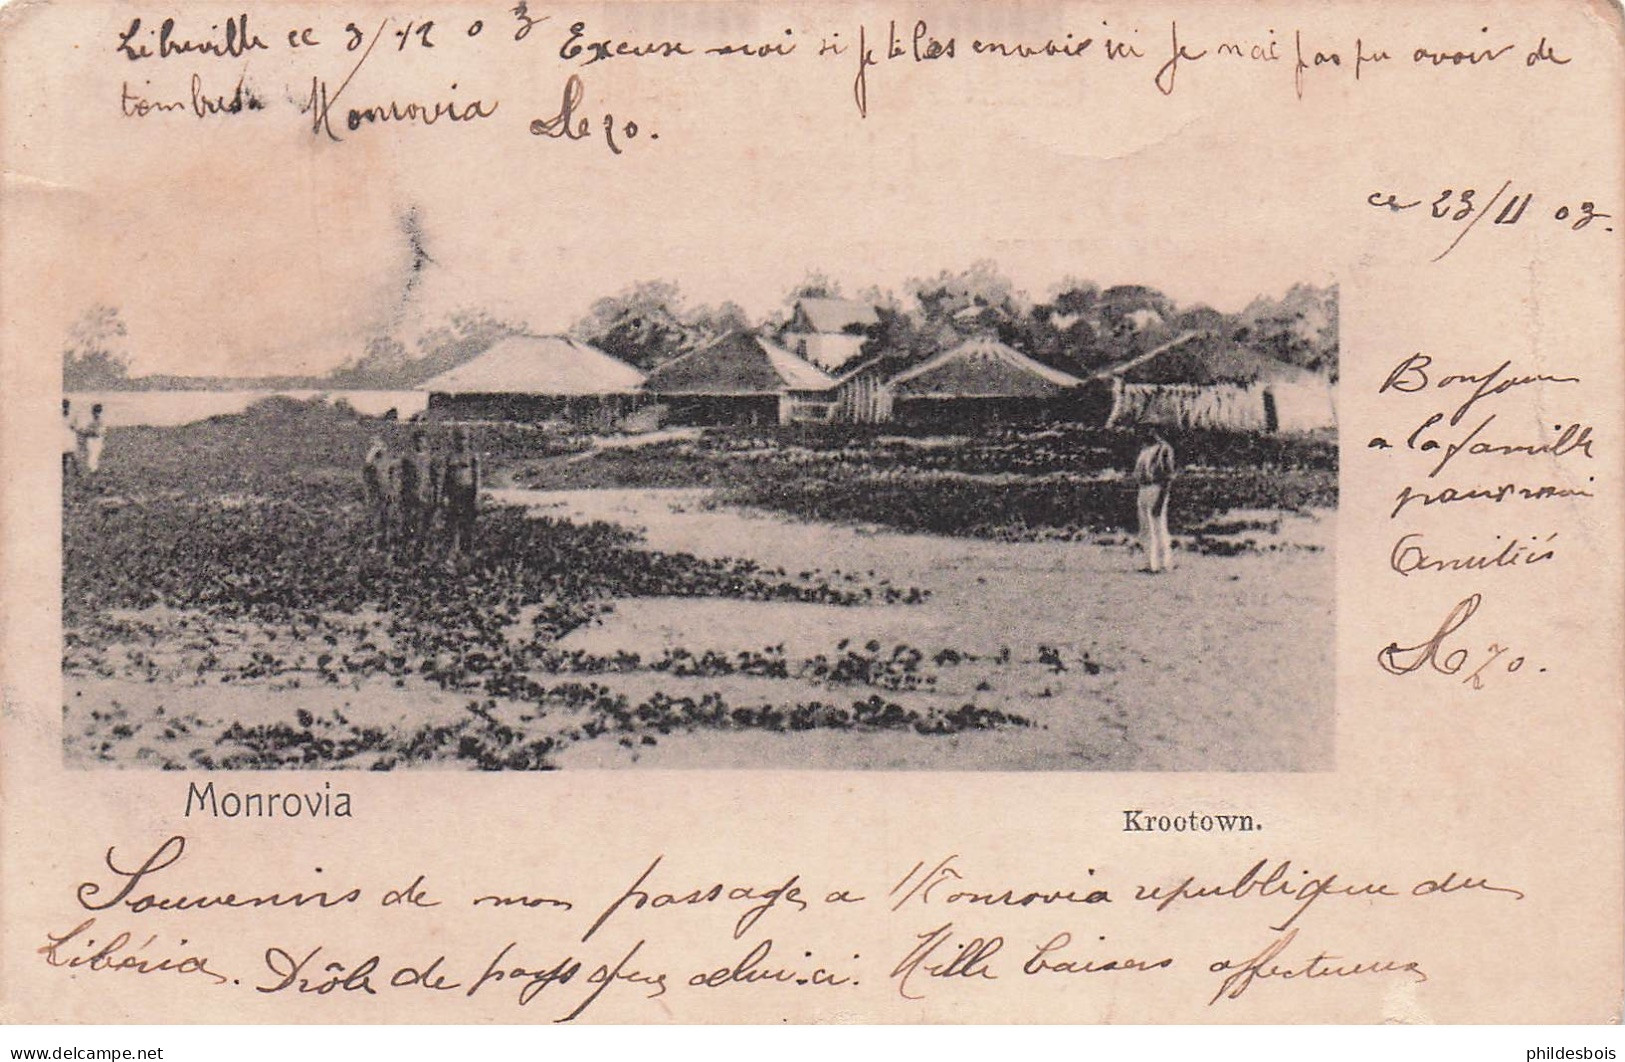 Libreville ce 3/12 03 Excuse moi si je te les envoie ici je n'ai pas pu avoir de
timbres a Monrovia
ce 23/11 03.
Bonjour
a la famille
pour moi
Amitiés
Monrovia
Krootown.
Souvenirs de mon passage a Monrovia republique du
Libéria. Drôle de pays que celui-ci. Mille baisers affectueux
phildesbois